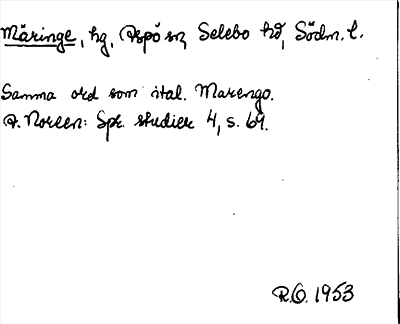 Märinge, hg, Aspö sn, Selebo hd, Södm. l.
Samma ord som ital. Marengo.
A. Noreen: Spr. studier 4, s. 69.
R.O. 1953